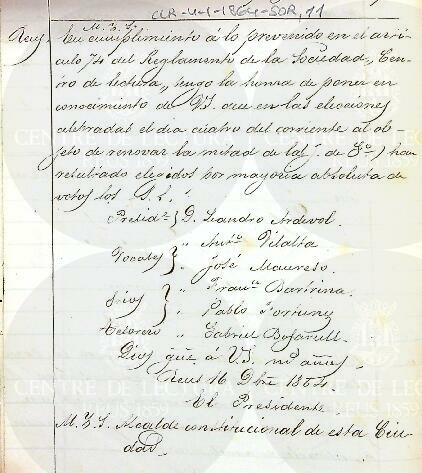 CLR-44-1864-SOR, 11
M. I. S.
Reus. En cumplimiento á lo prevenido en el artí-
culo 74 del Reglamento de la Sociedad „Cen-
tro de lectura„ tengo la honra de poner en
conocimiento de V.S. que en las elecciones
celebradas el dia cuatro del corriente al ob-
jeto de renovar la mitad de la J. de Go. han
resultado elegidos por mayoría absoluta de
votos los S.S.
Presidte } D. Leandro Ardevol
Vocales } „ Anto. Vilalta
„ José Maureso.
Srios } „ Franco. Bartrina
„ Pablo Fortuny
Tesorero „ Gabriel Bofarull.
Dios gue á V.S. ms. años.
Reus 16 Dbre 1864.
El Presidente
M. I. S. Alcalde constitucional de esta Ciu-
dad.
CENTRE DE LECTURA
REUS 1859